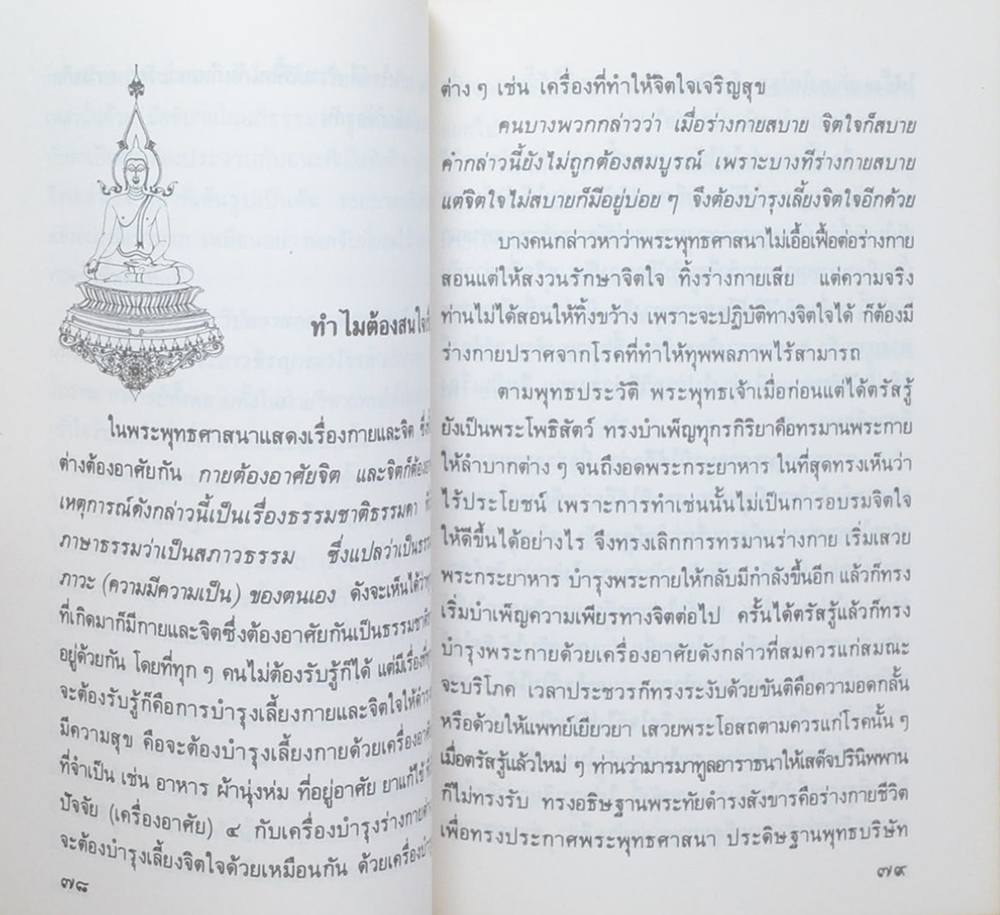 ทำไมต้องสนใจ
ในพระพุทธศาสนาแสดงเรื่องกายและจิต ซึ่ง
ต่างต้องอาศัยกัน กายต้องอาศัยจิต และจิตก็ต้อง
เหตุการณ์ดังกล่าวนี้เป็นเรื่องธรรมชาติธรรมดา
ภาษาธรรมว่าเป็นสภาวธรรม ซึ่งแปลว่าเป็น
ภาวะ (ความมีความเป็น) ของตนเอง ดังจะเห็นได้
ที่เกิดมาก็มีกายและจิตซึ่งต้องอาศัยกันเป็น
อยู่ด้วยกัน โดยที่ทุก ๆ คนไม่ต้องรับรู้ก็ได้ แต่มีเรื่อง
จะต้องรับรู้ก็คือการบำรุงเลี้ยงกายและจิตใจให้
มีความสุข คือจะต้องบำรุงเลี้ยงกายด้วยเครื่อง
ที่จำเป็น เช่น อาหาร ผ้านุ่งห่ม ที่อยู่อาศัย ยาแก้ไข้
ปัจจัย (เครื่องอาศัย) ๔ กับเครื่องบำรุงร่างกาย
จะต้องบำรุงเลี้ยงจิตใจด้วยเหมือนกัน ด้วยเครื่อง
๗๘
ต่าง ๆ เช่น เครื่องที่ทำให้จิตใจเจริญสุข
คนบางพวกกล่าวว่า เมื่อร่างกายสบาย จิตใจก็สบาย
คำกล่าวนี้ยังไม่ถูกต้องสมบูรณ์ เพราะบางทีร่างกายสบาย
แต่จิตใจไม่สบายก็มีอยู่บ่อย ๆ จึงต้องบำรุงเลี้ยงจิตใจอีกด้วย
บางคนกล่าวหาว่าพระพุทธศาสนาไม่เอื้อเฟื้อต่อร่างกาย
สอนแต่ให้สงวนรักษาจิตใจ ทิ้งร่างกายเสีย แต่ความจริง
ท่านไม่ได้สอนให้ทิ้งขว้าง เพราะจะปฏิบัติทางจิตใจได้ ก็ต้องมี
ร่างกายปราศจากโรคที่ทำให้ทุพพลภาพไร้สามารถ
ตามพุทธประวัติ พระพุทธเจ้าเมื่อก่อนแต่ได้ตรัสรู้
ยังเป็นพระโพธิสัตว์ ทรงบำเพ็ญทุกรกิริยาคือทรมานพระกาย
ให้ลำบากต่าง ๆ จนถึงอดพระกระยาหาร ในที่สุดทรงเห็นว่า
ไร้ประโยชน์ เพราะการทำเช่นนั้นไม่เป็นการอบรมจิตใจ
ให้ดีขึ้นได้อย่างไร จึงทรงเลิกการทรมานร่างกาย เริ่มเสวย
พระกระยาหาร บำรุงพระกายให้กลับมีกำลังขึ้นอีก แล้วก็ทรง
เริ่มบำเพ็ญความเพียรทางจิตต่อไป ครั้นได้ตรัสรู้แล้วก็ทรง
บำรุงพระกายด้วยเครื่องอาศัยดังกล่าวที่สมควรแก่สมณะ
จะบริโภค เวลาประชวรก็ทรงระงับด้วยขันติคือความอดกลั้น
หรือด้วยให้แพทย์เยียวยา เสวยพระโอสถตามควรแก่โรคนั้น ๆ
เมื่อตรัสรู้แล้วใหม่ ๆ ท่านว่ามารมาทูลอาราธนาให้เสด็จปรินิพพาน
ก็ไม่ทรงรับ ทรงอธิษฐานพระทัยดำรงสังขารคือร่างกายชีวิต
เพื่อทรงประกาศพระพุทธศาสนา ประดิษฐานพุทธบริษัท
๗๙